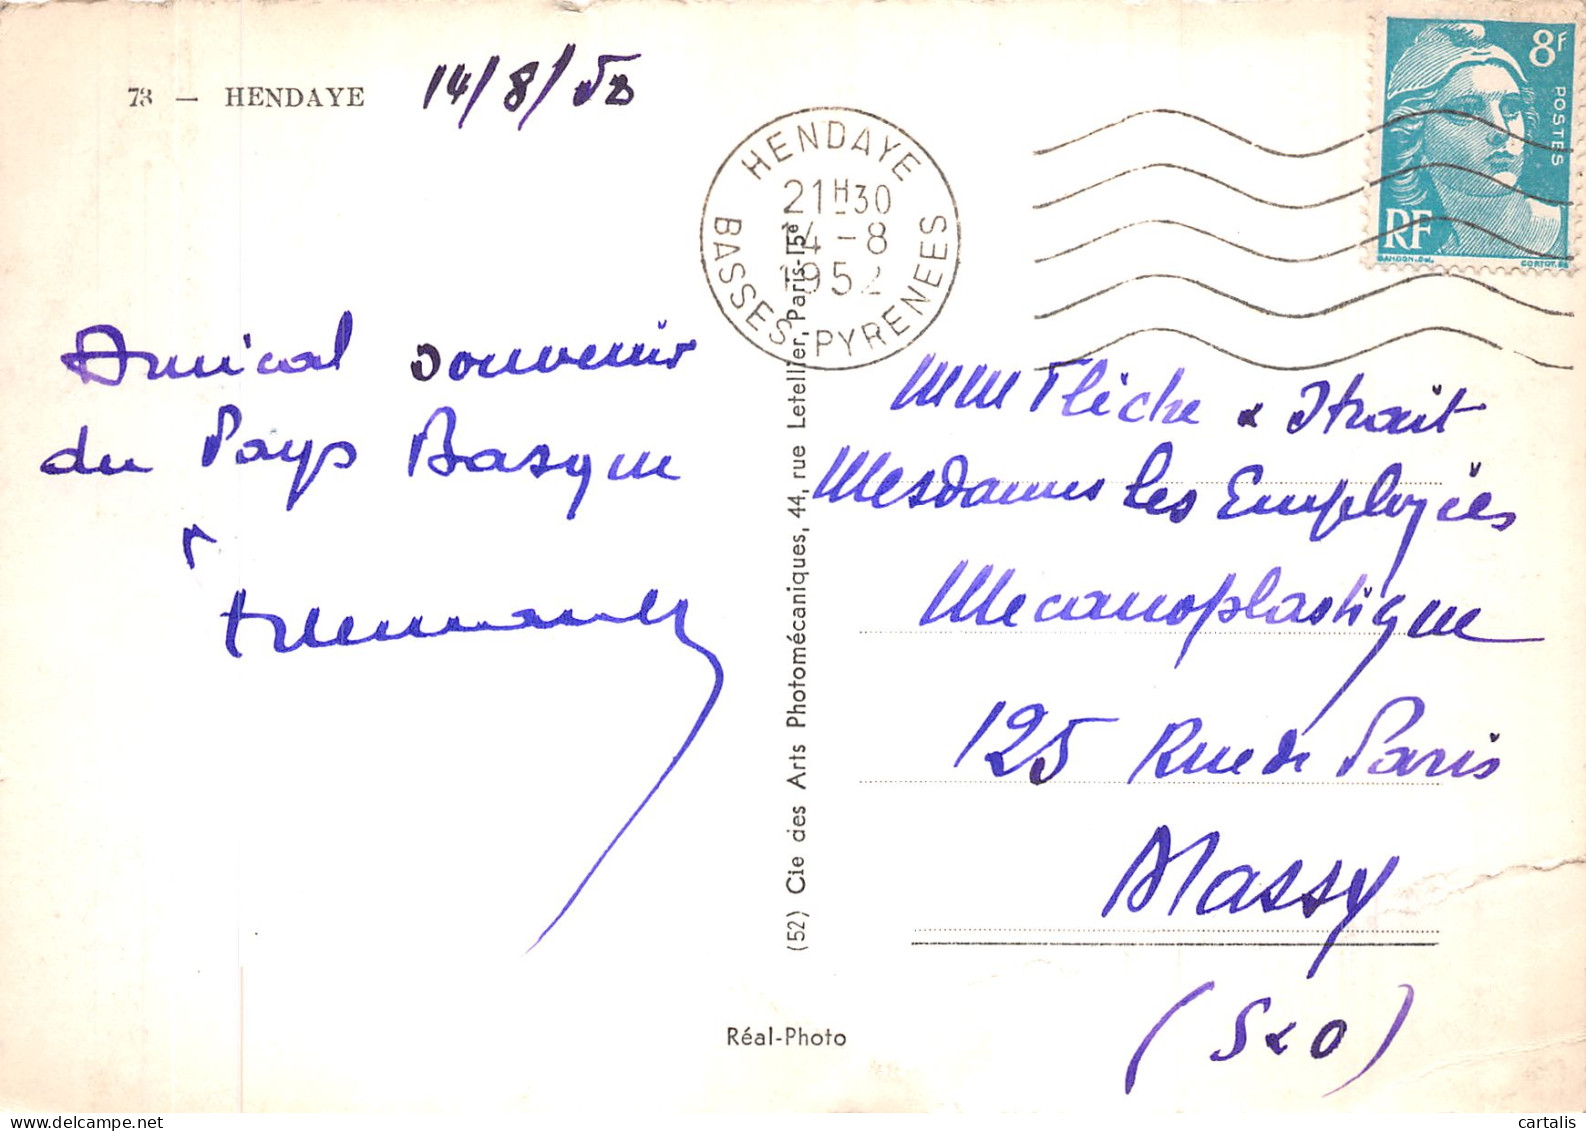 73 — HENDAYE 14/8/52
HENDAYE
21H30
14-8
1952
BASSES PYRENEES
8F
POSTES
RF
GANDON.Del.
CORTOT.Sc
Amical souvenir
du Pays Basque
MM Fliche & Itrait
Mesdames les Employées
Mecanoplastique
125 Rue de Paris
Massy
(S & O)
(52) Cie des Arts Photomécaniques, 44, rue Letellier, Paris-15e
Réal-Photo
cartalis